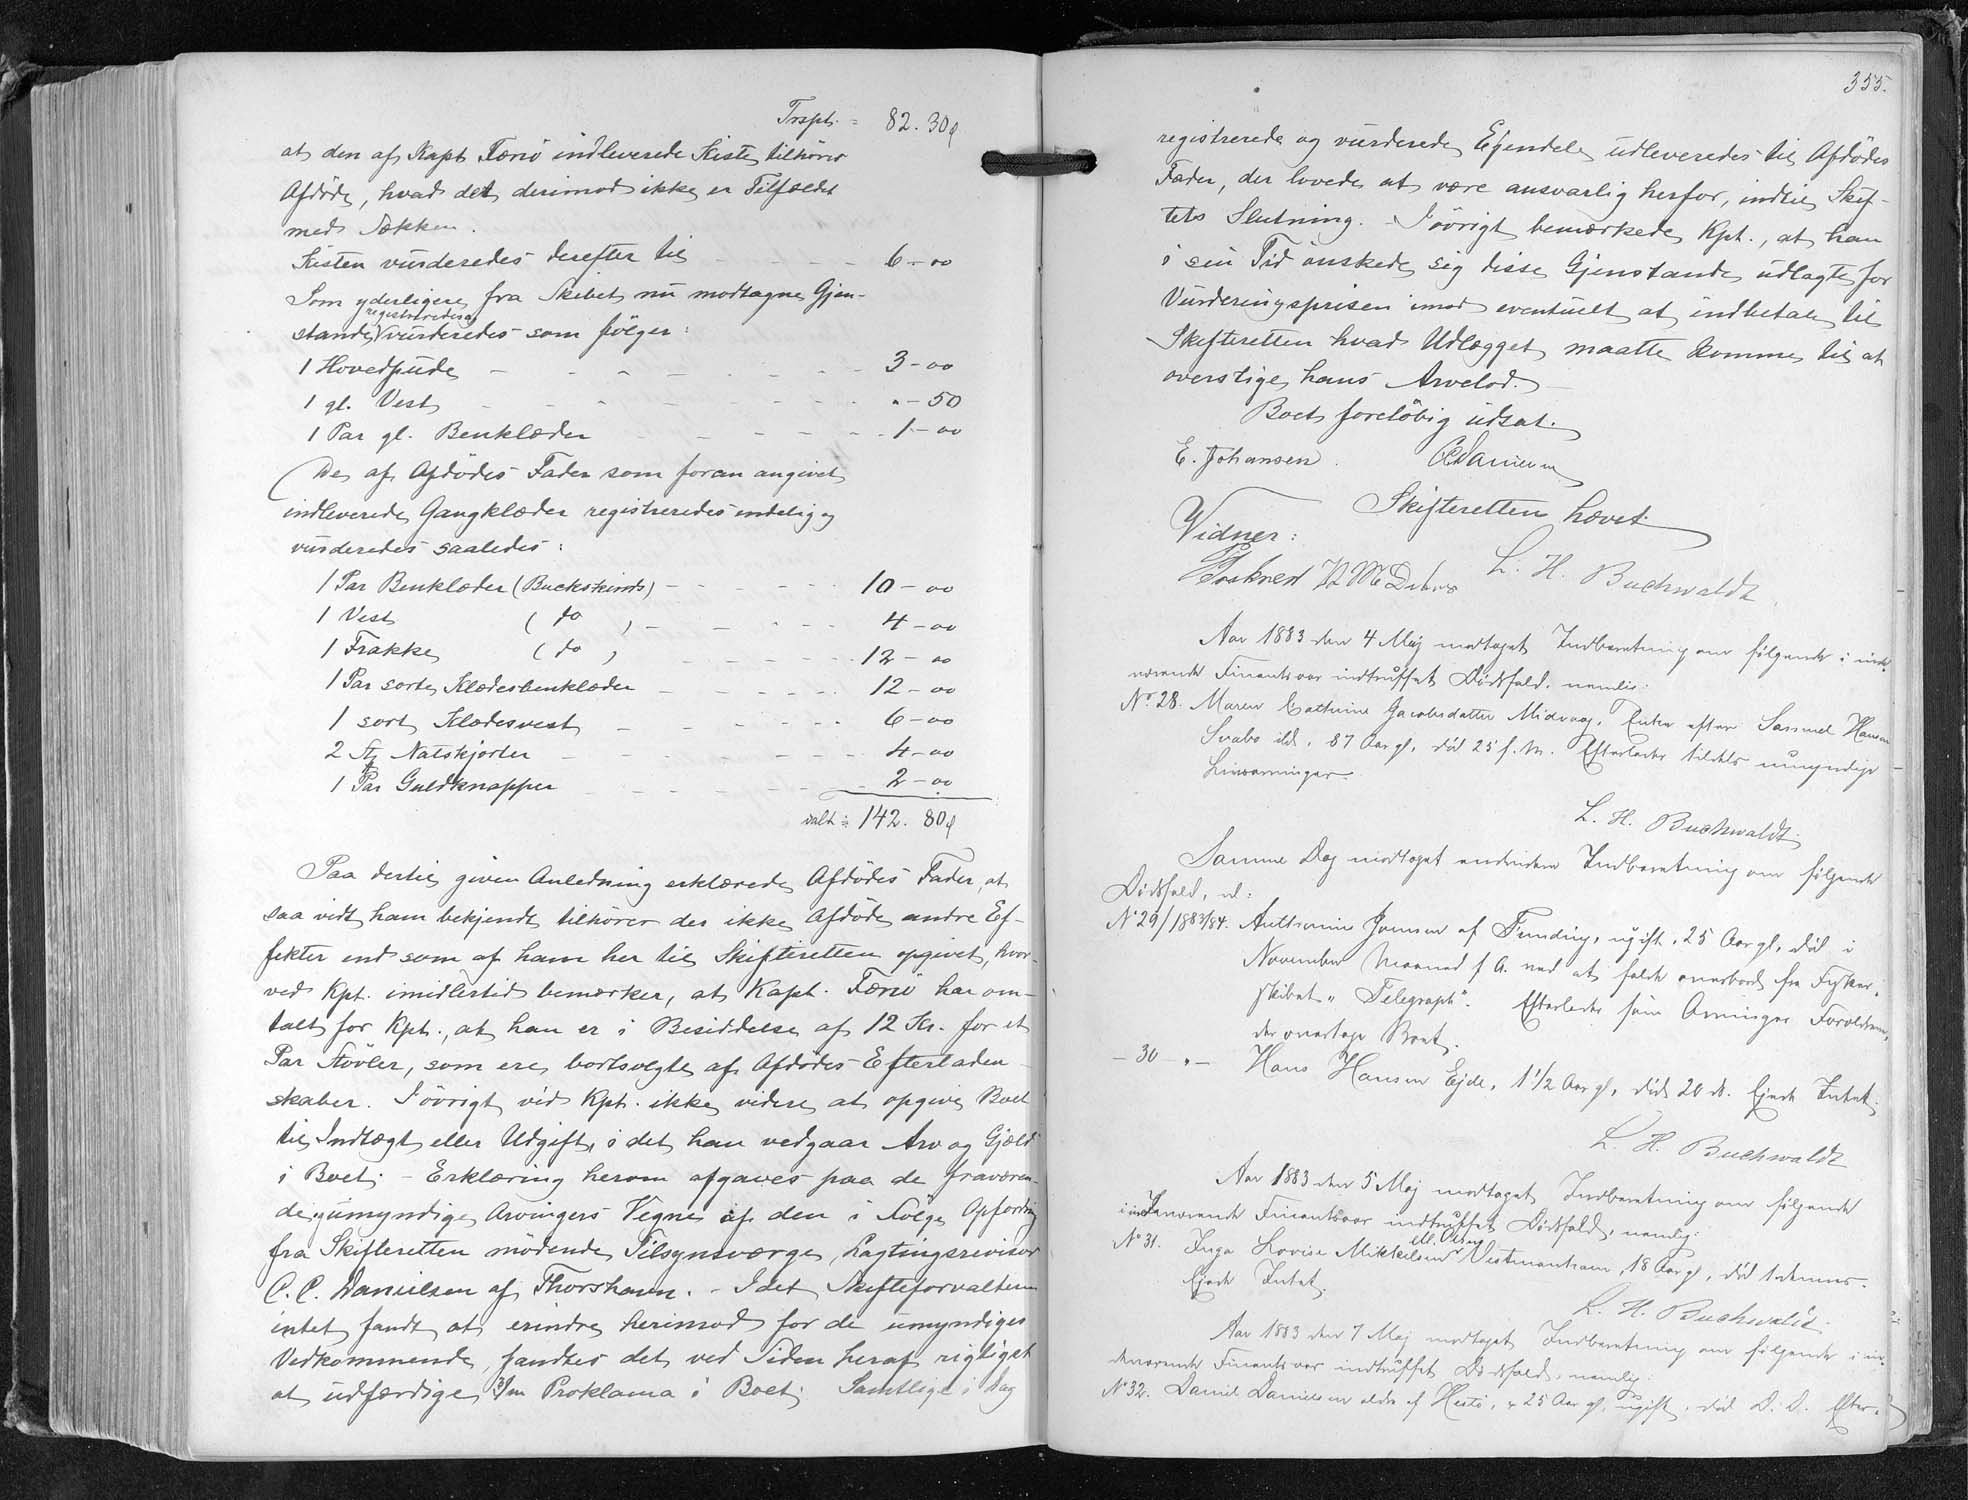 Trspt. = 82. 30ø
at den af Kapt Færø indleverede Kiste tilhører
Afdøde, hvad det derimod ikke er Tilfældet
med Sækken.
Kisten vurderedes derefter til - - - - 6-00
Som yderligere fra Skibet nu modtagne Gjen-
registreredes og
stande vurderedes som følger:
1 Hovedpude - - - - - - 3-00
1 gl. Vest - - - - - - "-50
1 Par gl. Benklæder - - - - - 1-00
De af Afdødes Fader som foran angivet
indleverede Gangklæder registreredes endelig og
vurderedes saaledes:
1 Par Benklæder (Buckskinds) - - - - 10-00
1 Vest (do) - - - - - 4-00
1 Frakke (do) - - - - - 12-00
1 Par sorte Klædesbenklæder - - - - - 12-00
1 sort Klædesvest - - - - - 6-00
2 Stk Natskjorter - - - - - - 4-00
1 Par Guldknapper - - - - - - 2-00
ialt = 142. 80ø
Paa dertil given Anledning erklærede Afdødes Fader, at
saa vidt ham bekjendt tilhører der ikke Afdøde andre Ef-
fekter end som af ham her til Skifteretten opgivet, hvor-
ved Kpt. imidlertid bemærker, at Kapt. Færø har om-
talt for Kpt., at han er i Besiddelse af 12 Kr. for et
Par Støvler, som ere bortsolgte af Afdødes Efterladen-
skaber. Iøvrigt véd Kpt. ikke videre at opgive Boet
til Indtægt eller Udgift, idet han vedgaar Arv og Gjæld
i Boet. - Erklæring herom afgaves paa de fraværen-
de umyndige Arvingers Vegne af den i Følge Opfordring
fra Skifteretten mødende Tilsynsværge, Lagtingsrevisor
C. C. Danielsen af Thorshavn. - Idet Skifteforvalteren
intet fandt at erindre herimod for de umyndiges
Vedkommende, fandtes det ved Siden heraf rigtigst
at udfærdige 3/m Proklama i Boet. Samtlige i Dag
355.
registrerede og vurderede Ejendele udleveredes til Afdødes
Fader, der lovede at være ansvarlig herfor, indtil Skif-
tets Slutning. - Iøvrigt bemærkede Kpt., at han
i sin Tid ønskede sig disse Gjenstande udlagte for
Vurderingsprisen imod eventuelt at indbetale til
Skifteretten hvad Udlægget maatte komme til at
overstige hans Arvelod. -
Boet foreløbig udsat.
E. Johansen. CCDanielsen
Skifteretten hævet.
Vidner:
L. H. Buchwaldt.
Aar 1883 den 4 Maj modtaget Indberetning om følgende i inde-
værende Finantsaar indtruffet Dødsfald, nemlig:
No. 28. Maren Cathrine Jacobsdatter Midvaag, Enke efter Samuel Hansen
Svabo ibd., 87 Aar gl., død 25 f. M. Efterlader tildels umyndige
Livsarvinger.
L. H. Buchwaldt.
Samme Dag modtaget endvidere Indberetning om følgende
Dødsfald, nl:
No 29/1883/84. Joensen af Funding, ugift, 25 Aar gl., død i
November Maaned f. A. ved at falde overbord fra Fisker-
skibet "Telegraph". Efterlader som Arvinger Forældrene,
der overtage Boet.
- 30 - " - Hans Hansen Ejde, 1 1/2 Aar gl., død 20 d. Ejede Intet.
L. H. Buchwaldt
Aar 1883 den 5 Maj modtaget Indberetning om følgende
i indeværende Finantsaar indtruffet Dødsfald, nemlig:
No 31. Inga Lovise Mikkelsen Vestmanhavn, 18 Aar gl., død 1 dennes.
Ejede Intet.
L. H. Buchwaldt.
Aar 1883 den 7 Maj modtaget Indberetning om følgende i in-
deværende Finantsaar indtruffet Dødsfald, nemlig:
No 32. Daniel Danielsen ældre af Hestø, 25 Aar gl., ugift, død D. D. Efter-